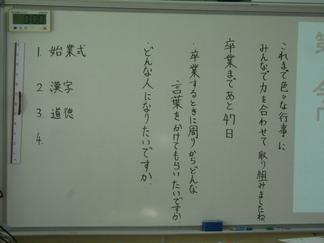 これまで色々な行事に
みんなで力を合わせて取り組みましたね
卒業まであと47日
・卒業するときに周りからどんな
言葉をかけてもらいたいですか
どんな人になりたいですか.
1. 始業式
2. 漢字
3. 道徳
4.